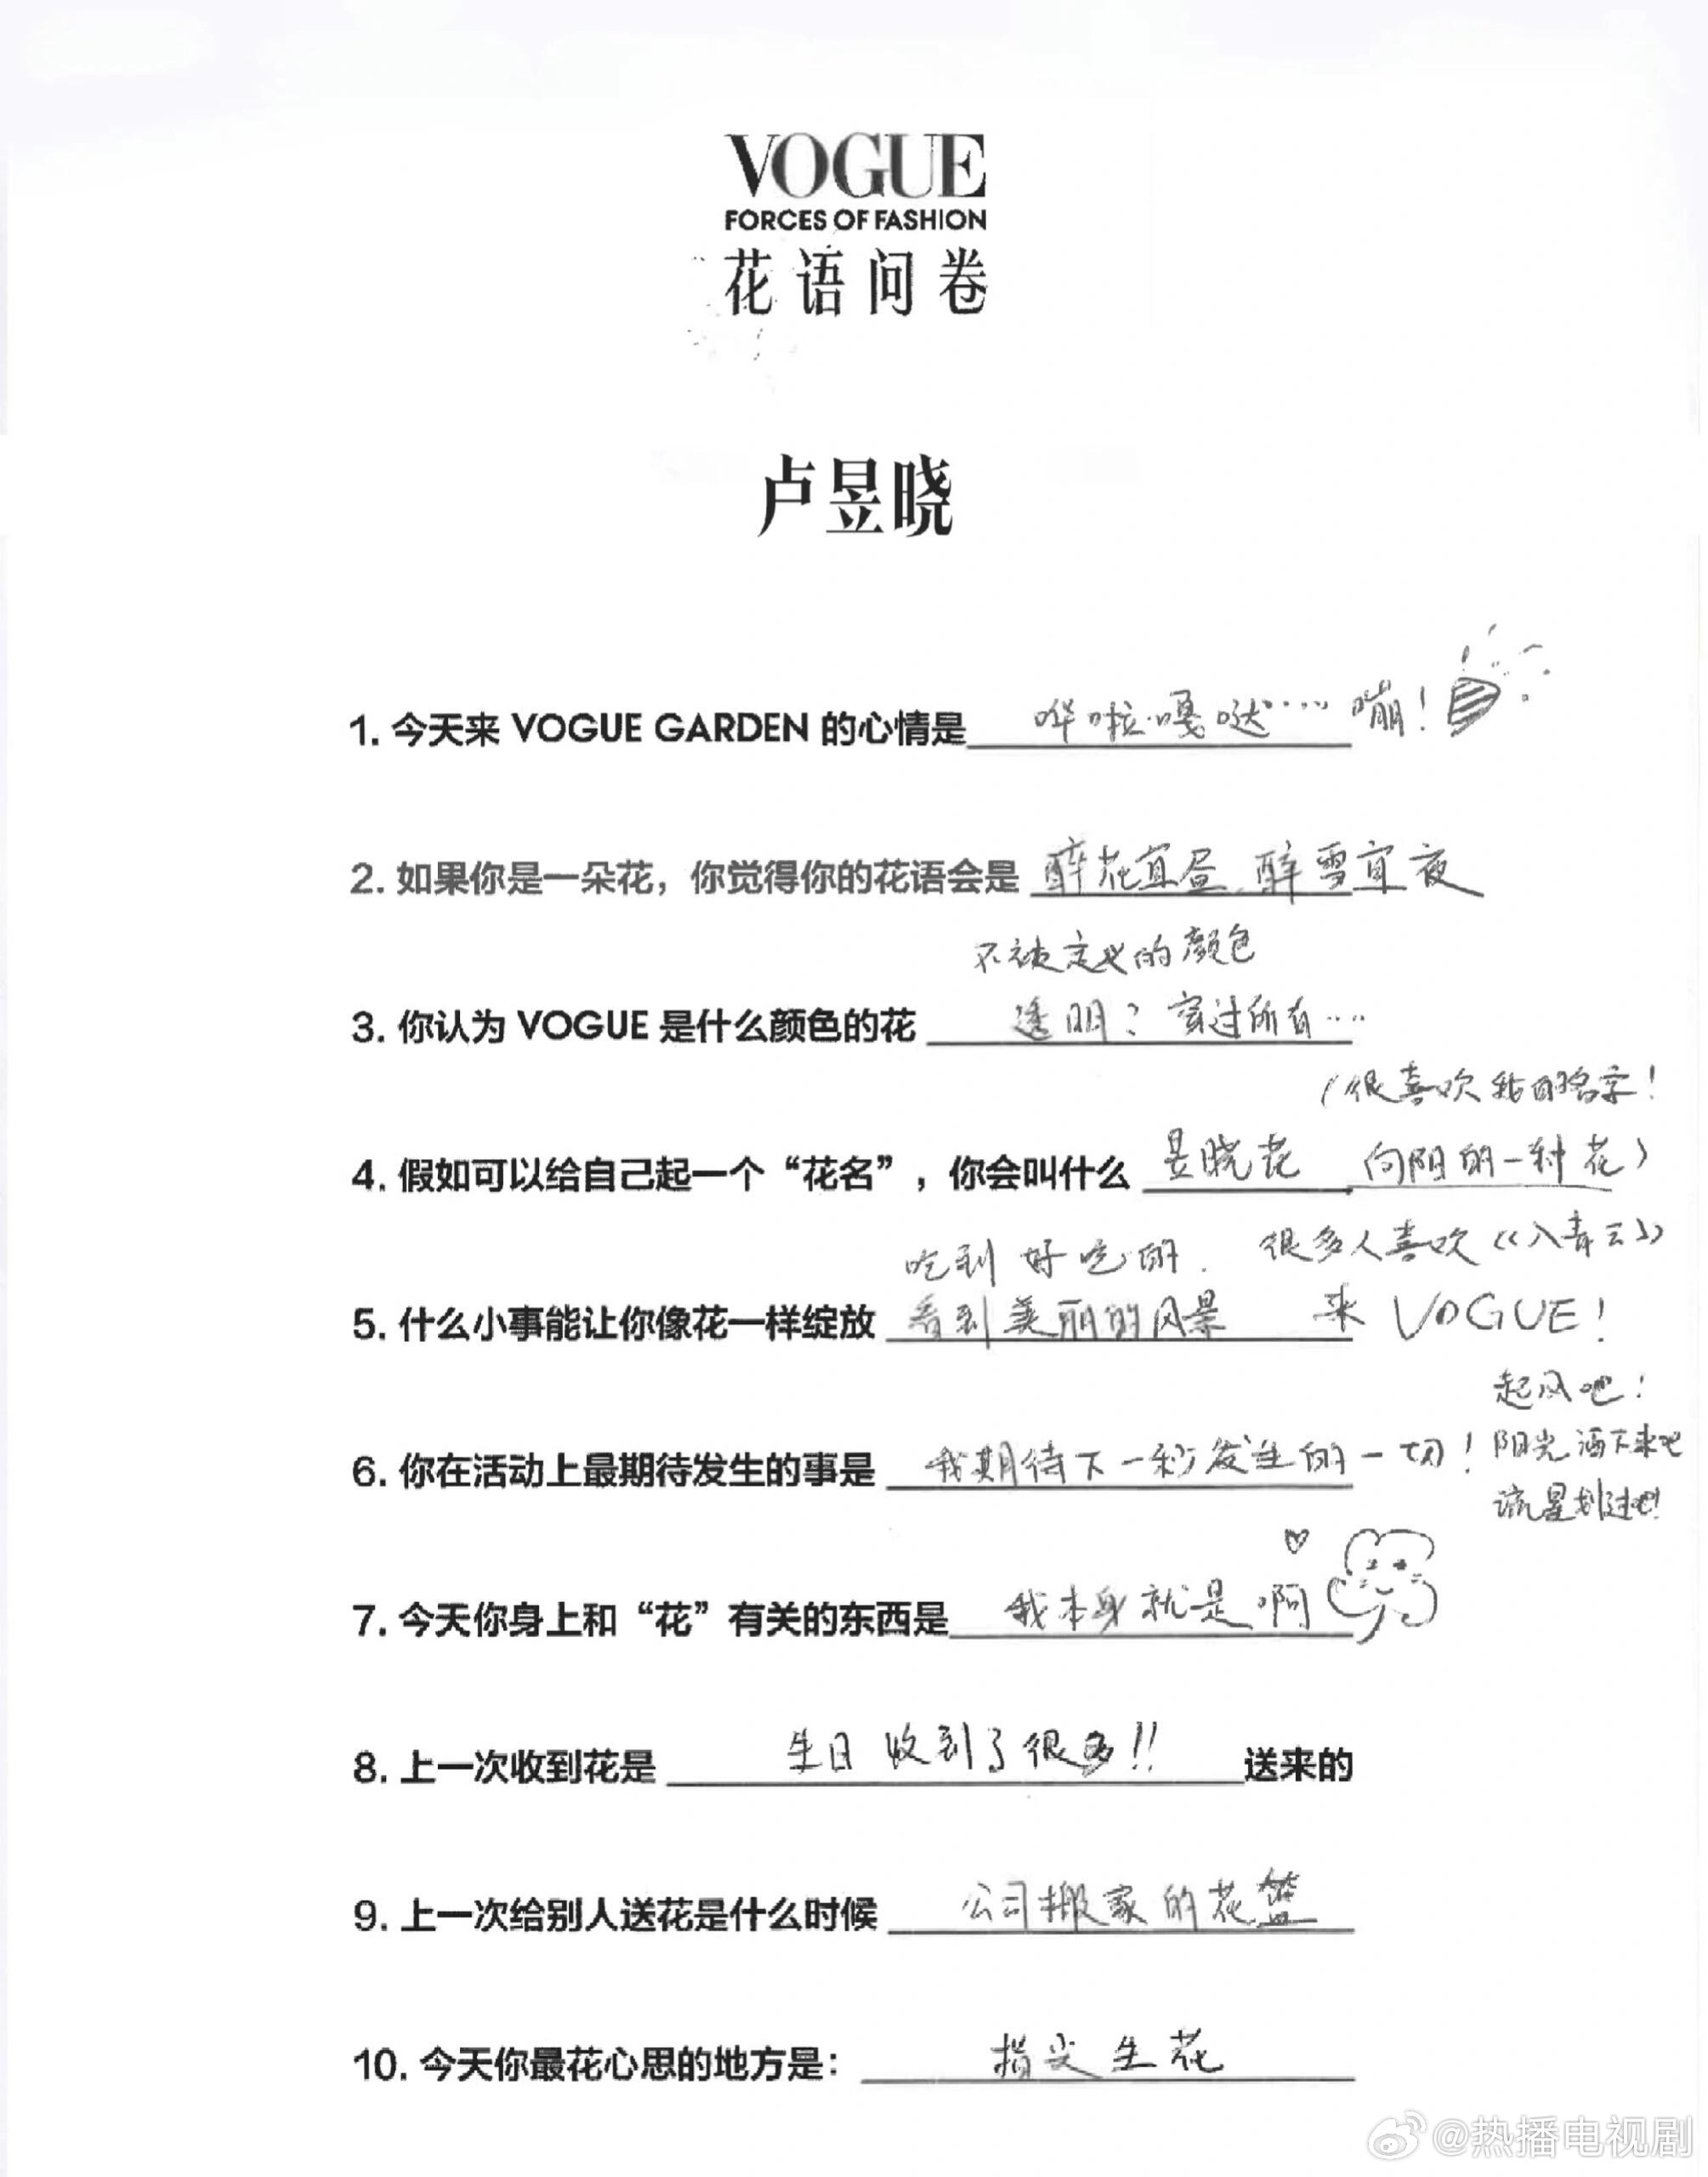 VOGUE
FORCES OF FASHION
花语问卷
卢昱晓
1. 今天来 VOGUE GARDEN 的心情是 哗啦嘎哒…… 嘣！
2. 如果你是一朵花，你觉得你的花语会是 醉花宜昼、醉雪宜夜
不被定义的颜色
3. 你认为 VOGUE 是什么颜色的花 透明？穿过所有……
（很喜欢我的名字！
4. 假如可以给自己起一个“花名”，你会叫什么 昱晓花 向阳的一种花）
吃到好吃的. 很多人喜欢《入青云》
5. 什么小事能让你像花一样绽放 看到美丽的风景 来 VOGUE！
起风吧！
6. 你在活动上最期待发生的事是 我期待下一秒发生的一切！ 阳光洒下来吧
流星划过吧！
7. 今天你身上和“花”有关的东西是 我本身就是啊
8. 上一次收到花是 生日收到了很多!! 送来的
9. 上一次给别人送花是什么时候 公司搬家的花篮
10. 今天你最花心思的地方是： 指尖生花
@热播电视剧